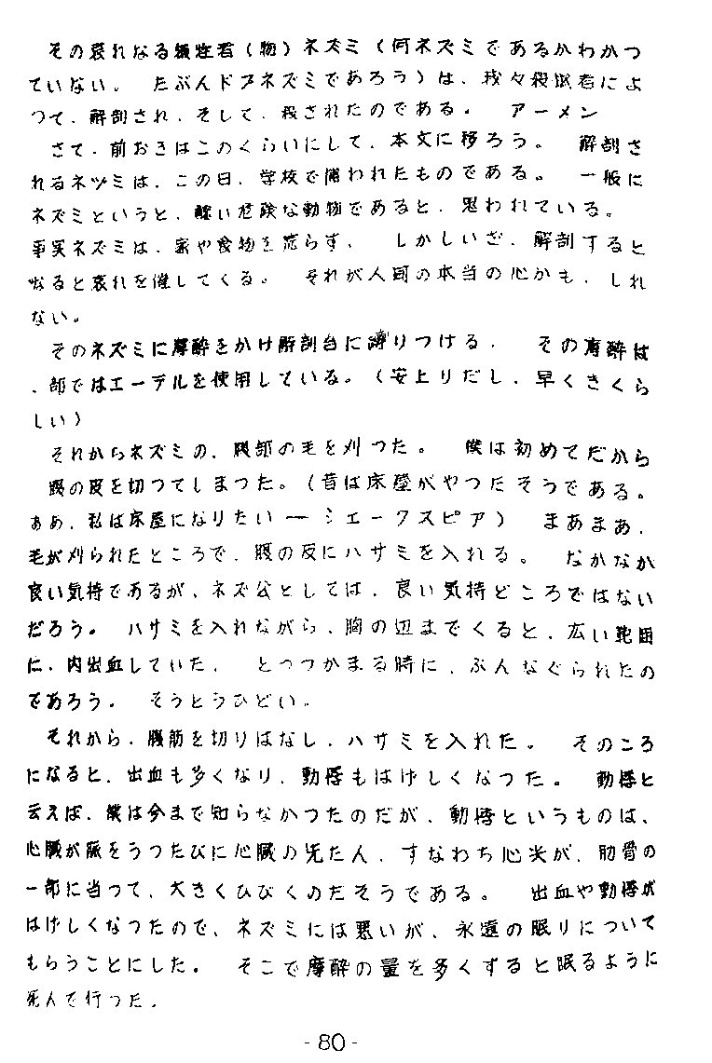 その哀れなる犠牲者（物）ネズミ（何ネズミであるかわかつ
ていない。 たぶんドブネズミであろう）は、我々殺滋者によ
つて、解剖され、そして、殺されたのである。 アーメン
さて、前おきはこのくらいにして、本文に移ろう。 解剖さ
れるネヅミは、この日、学校で捕われたものである。 一般に
ネズミというと、醜い危険な動物であると、思われている。
事実ネズミは、家や食物を荒らす、 しかしいざ、解剖すると
なると哀れを催してくる。 それが人間の本当の心かも、しれ
ない。
そのネズミに摩酔をかけ解剖台に縛りつける、 その摩酔は
、部ではエーテルを使用している。（安上りだし、早くきくら
しい）
それからネズミの、腹部の毛を刈つた。 僕は初めてだから
腹の皮を切つてしまつた。（昔は床屋がやつたそうである。
ああ、私は床屋になりたい ── シエークスピア） まあまあ、
毛が刈られたところで、腹の皮にハサミを入れる。 なかなか
良い気持であるが、ネズ公としては、良い気持どころではない
だろう。 ハサミを入れながら、胸の辺までくると、広い範囲
に、内出血していた、 とつつかまる時に、ぶんなぐられたの
であろう。 そうとうひどい。
それから、腹筋を切りはなし、ハサミを入れた。 そのころ
になると、出血も多くなり、動悸もはげしくなつた。 動悸と
云えば、僕は今まで知らなかつたのだが、動悸というものは、
心臓が脈をうつたびに心臓の先たん、すなわち心尖が、肋骨の
一部に当つて、大きくひびくのだそうである。 出血や動悸が
はげしくなつたので、ネズミには悪いが、永遠の眠りについて
もらうことにした。 そこで摩酔の量を多くすると眠るように
死んで行つた。
- 80 -